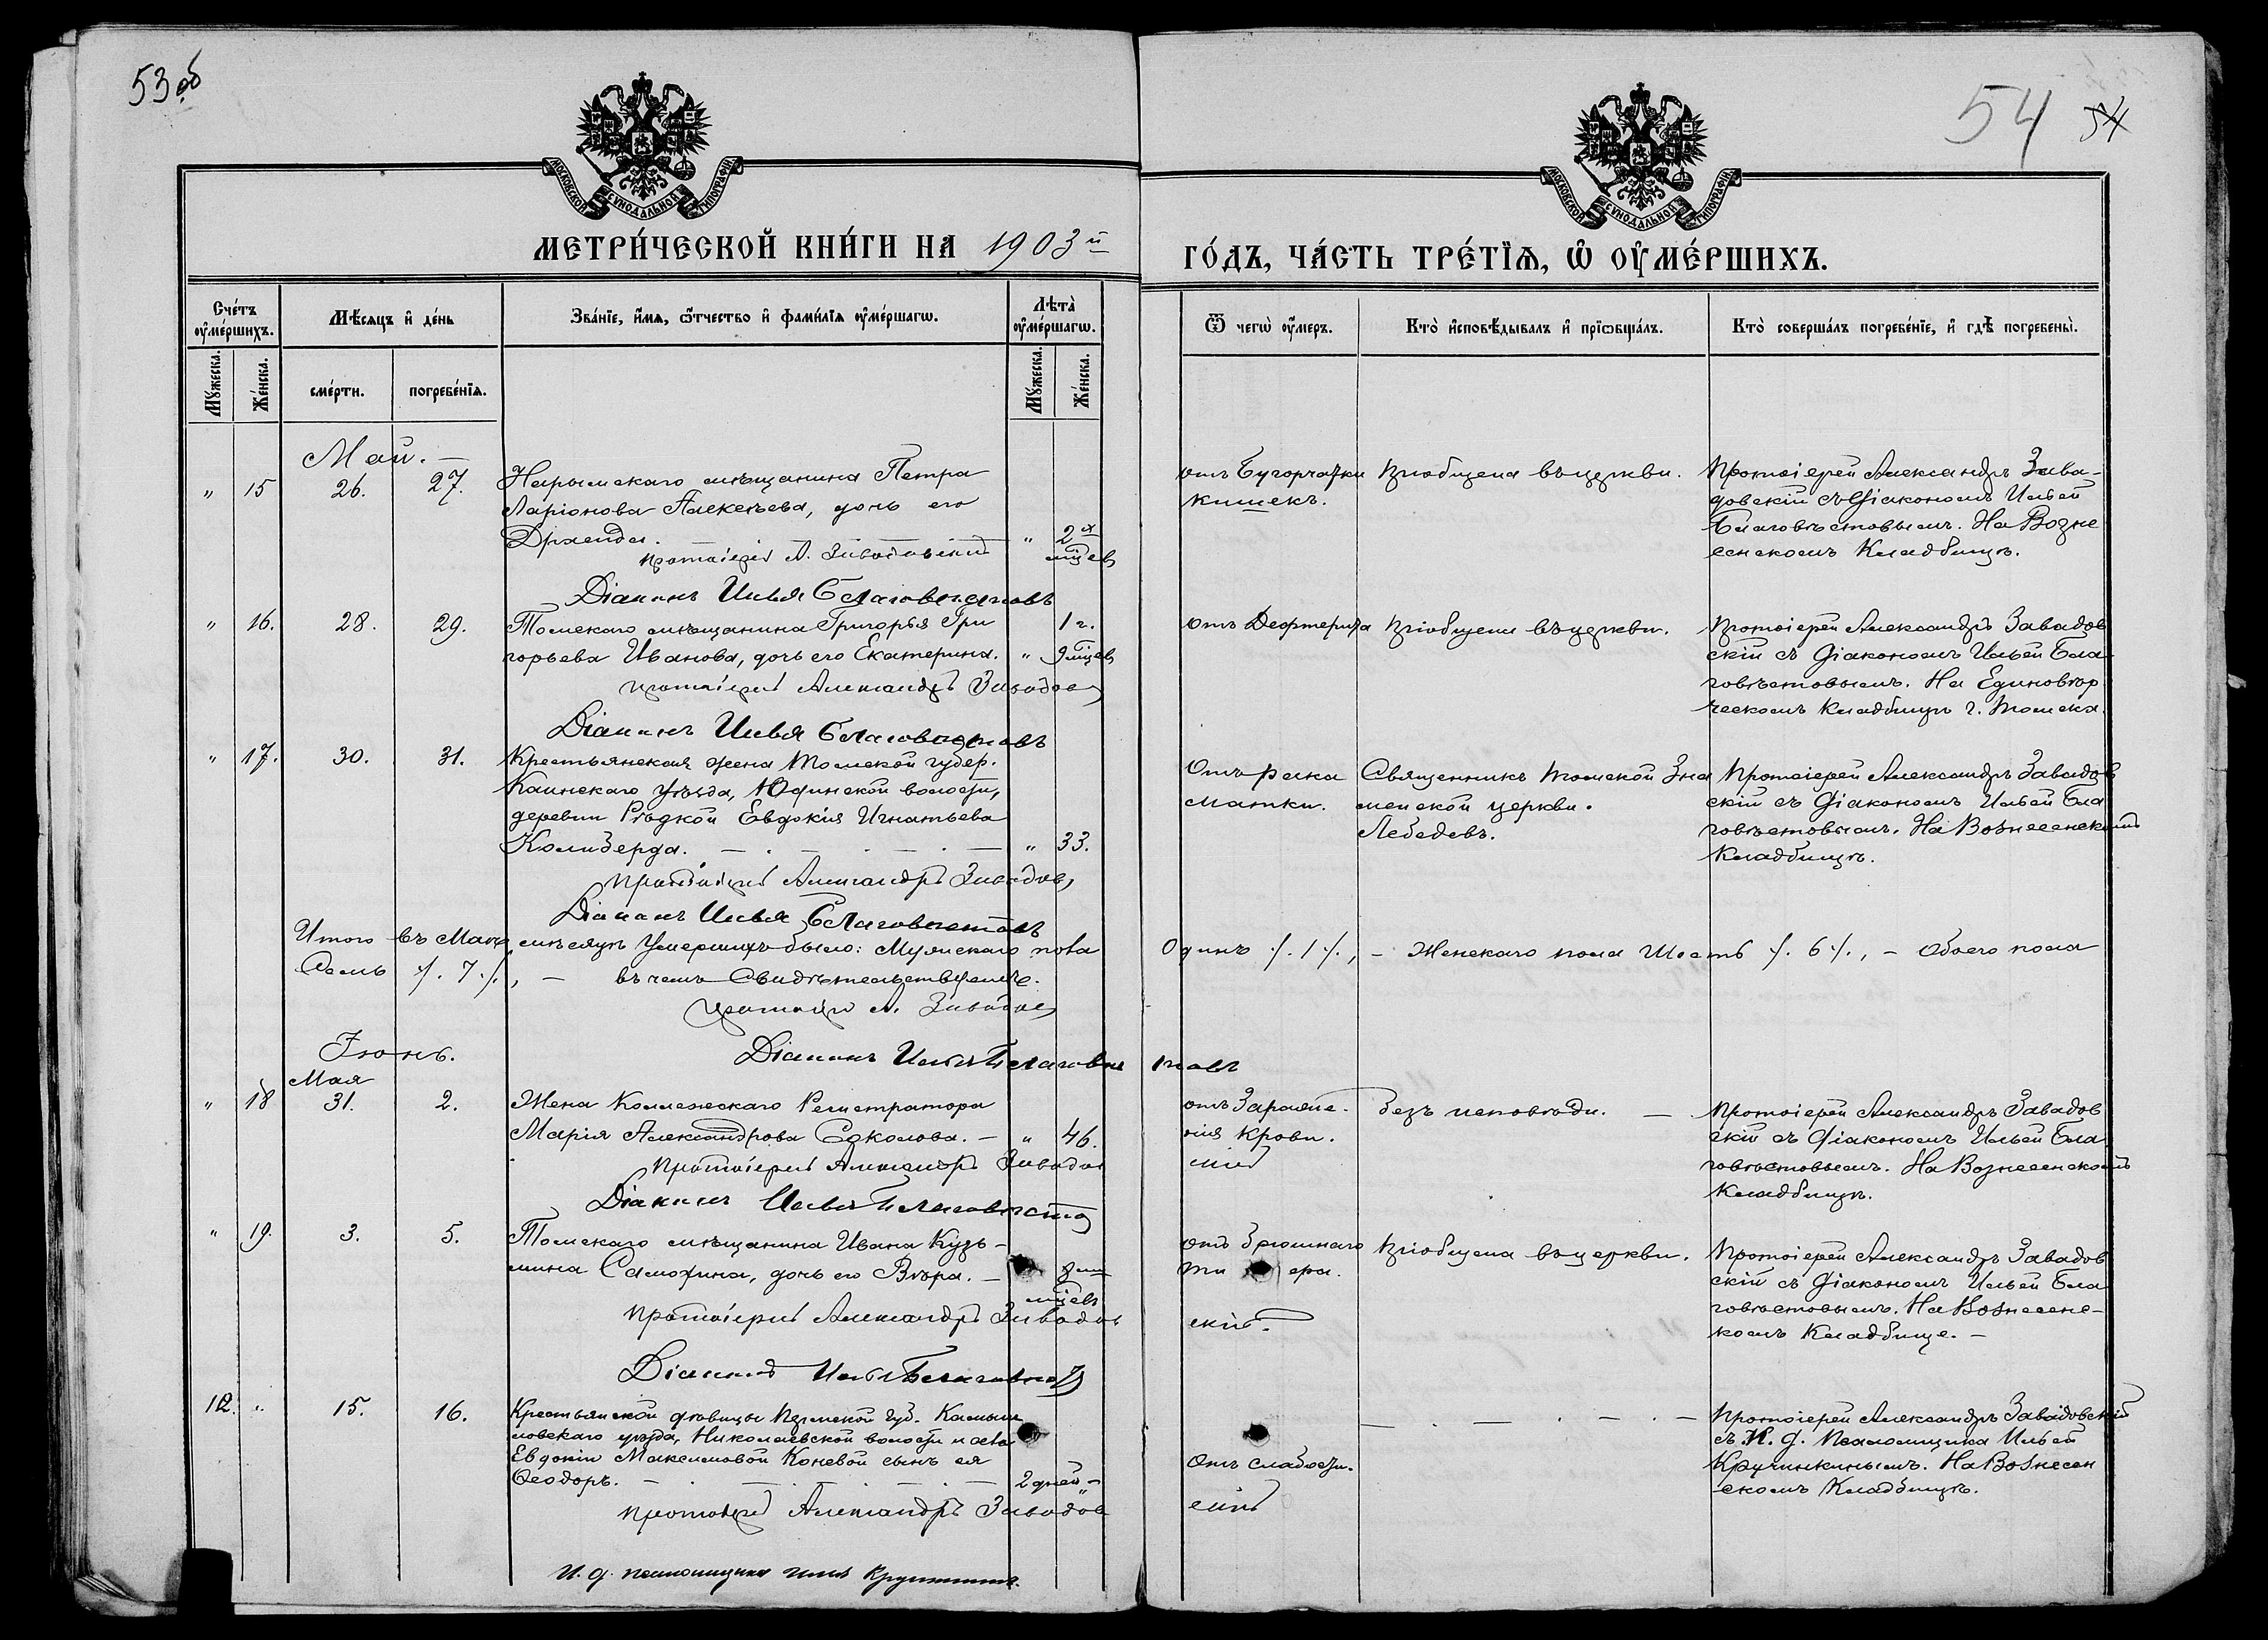 53 об
54
54
МОСКОВСКОЙ СѴНОДАЛЬНОЙ ТИПОГРАФІИ
МОСКОВСКОЙ СѴНОДАЛЬНОЙ ТИПОГРАФІИ
МЕТРИ́ЧЕСКОЙ КНИ́ГИ НА 1903 й
ГО́ДЪ, ЧА́СТЬ ТРЕ́ТІѦ, Ѡ҆ ОУ҆МЕ́РШИХЪ.
Сче́тъ оу҆ме́ршихъ.
Мѣ́сяцъ и҆ де́нь
Зва́нїе, и҆́мѧ, ѻ҆́тчество и҆ фами́лїѧ оу҆ме́ршагѡ.
Лѣта̀ оу҆ме́ршагѡ.
Ѿ чегѡ̀ оу҆́меръ.
Кто̀ и҆сповѣ́дывалъ и҆ прїѡбща́лъ.
Кто̀ соверша́лъ погребе́нїе, и҆ гдѣ̀ погребены̀.
Мꙋ́жеска.
Же́нска.
сме́рти.
погребе́нїѧ.
Мꙋ́жеска.
Же́нска.
Май. —
" 15 26. 27. Нарымскаго мѣщанина Петра
Ларіонова Алексѣева, дочь его
" 2 х
мѣцевъ
Протоіерей А. Заводовскій
Діаконъ Илья Благовѣстовъ
отъ Бугорчатки
кишекъ.
Пріобщена въ церкви.
Протоіерей Александръ Зава-
довскій съ Діакономъ Ильей
Благовѣстовымъ. На Возне
сенскомъ Кладбищѣ.
" 16. 28. 29. Томскаго мѣщанина Григорья Гри 1 г.
горьева Иванова, дочь его Екатерина. " 9 мѣцевъ
Протоіерей Александръ Заводов
Діаконъ Илья Благовѣстовъ
отъ Дефтерита
Пріобщена въ церкви.
Протоіерей Александръ Завадов
скій съ Діакономъ Ильей Бла
говѣстовымъ. На Единовѣр
ческомъ кладбищѣ г. Томска.
" 17. 30. 31. Крестьянская жена Томской губер.
Каинскаго уѣзда, Юдинской волости,
деревни Рѣдкой Евдокія Игнатьева
Колиберда. — . — . — . — " 33.
Протоіерей Александръ Заводов
Діаконъ Илья Благовѣстовъ
Отъ рака
матки.
Священникъ Томской Зна
менской церкви.
Лебедевъ.
Протоіерей Александръ Завадов
скій съ Діакономъ Ильей Бла
говѣстовымъ. На Вознесенскомъ
Кладбищѣ.
Итого въ Маѣ мѣсяцѣ умершихъ было: Мужскаго пола Одинъ /. 1 /., – Женскаго пола Шесть /. 6 /., – Обоего пола
Семь /. 7 /., — въ чемъ свидѣтельствуемъ.
Протоіерей А. Заводов
Діаконъ Илья Благовѣстовъ
Іюнь.
Мая
" 18 31. 2. Жена Коллежскаго Регистратора
Марія Александрова Соколова. – " 46.
Протоіерей Александръ Заводовскій
Діаконъ Илья Благовѣстов
отъ Зараже-
нія крови.
Безъ исповѣди. —
Протоіерей Александръ Завадов
скій съ Діакономъ Ильей Бла
говѣстовымъ. На Вознесенскомъ
Кладбищѣ.
" 19. 3. 5. Томскаго мѣщанина Ивана Кузь-
мина Самохина, дочь его Вѣра. –
мѣцевъ
Протоіерей Александръ Заводовскій
Діаконъ Илья Благовѣстовъ
отъ брюшнаго
ти ера.
Пріобщена въ церкви.
Протоіерей Александръ Завадов
скій съ Діакономъ Ильей Бла
говѣстовымъ. На Вознесенс-
комъ Кладбище. –
12. " 15. 16. Крестьянской дѣвицы Пермской губ. Камыш
ловскаго уѣзда, Николаевской волости и села
Евдокіи Максимовой Коневой сынъ ея
Ѳеодоръ. — 2 дней – "
Протоіерей Александръ Заводовскій
И. д. псаломщика Илья Кручинкинъ.
Отъ слабости.
— . — . — . —
Протоіерей Александръ Завадовскій
съ И. д. Псаломщика Ильей
Кручинкинымъ. На Вознесен
скомъ Кладбищѣ.